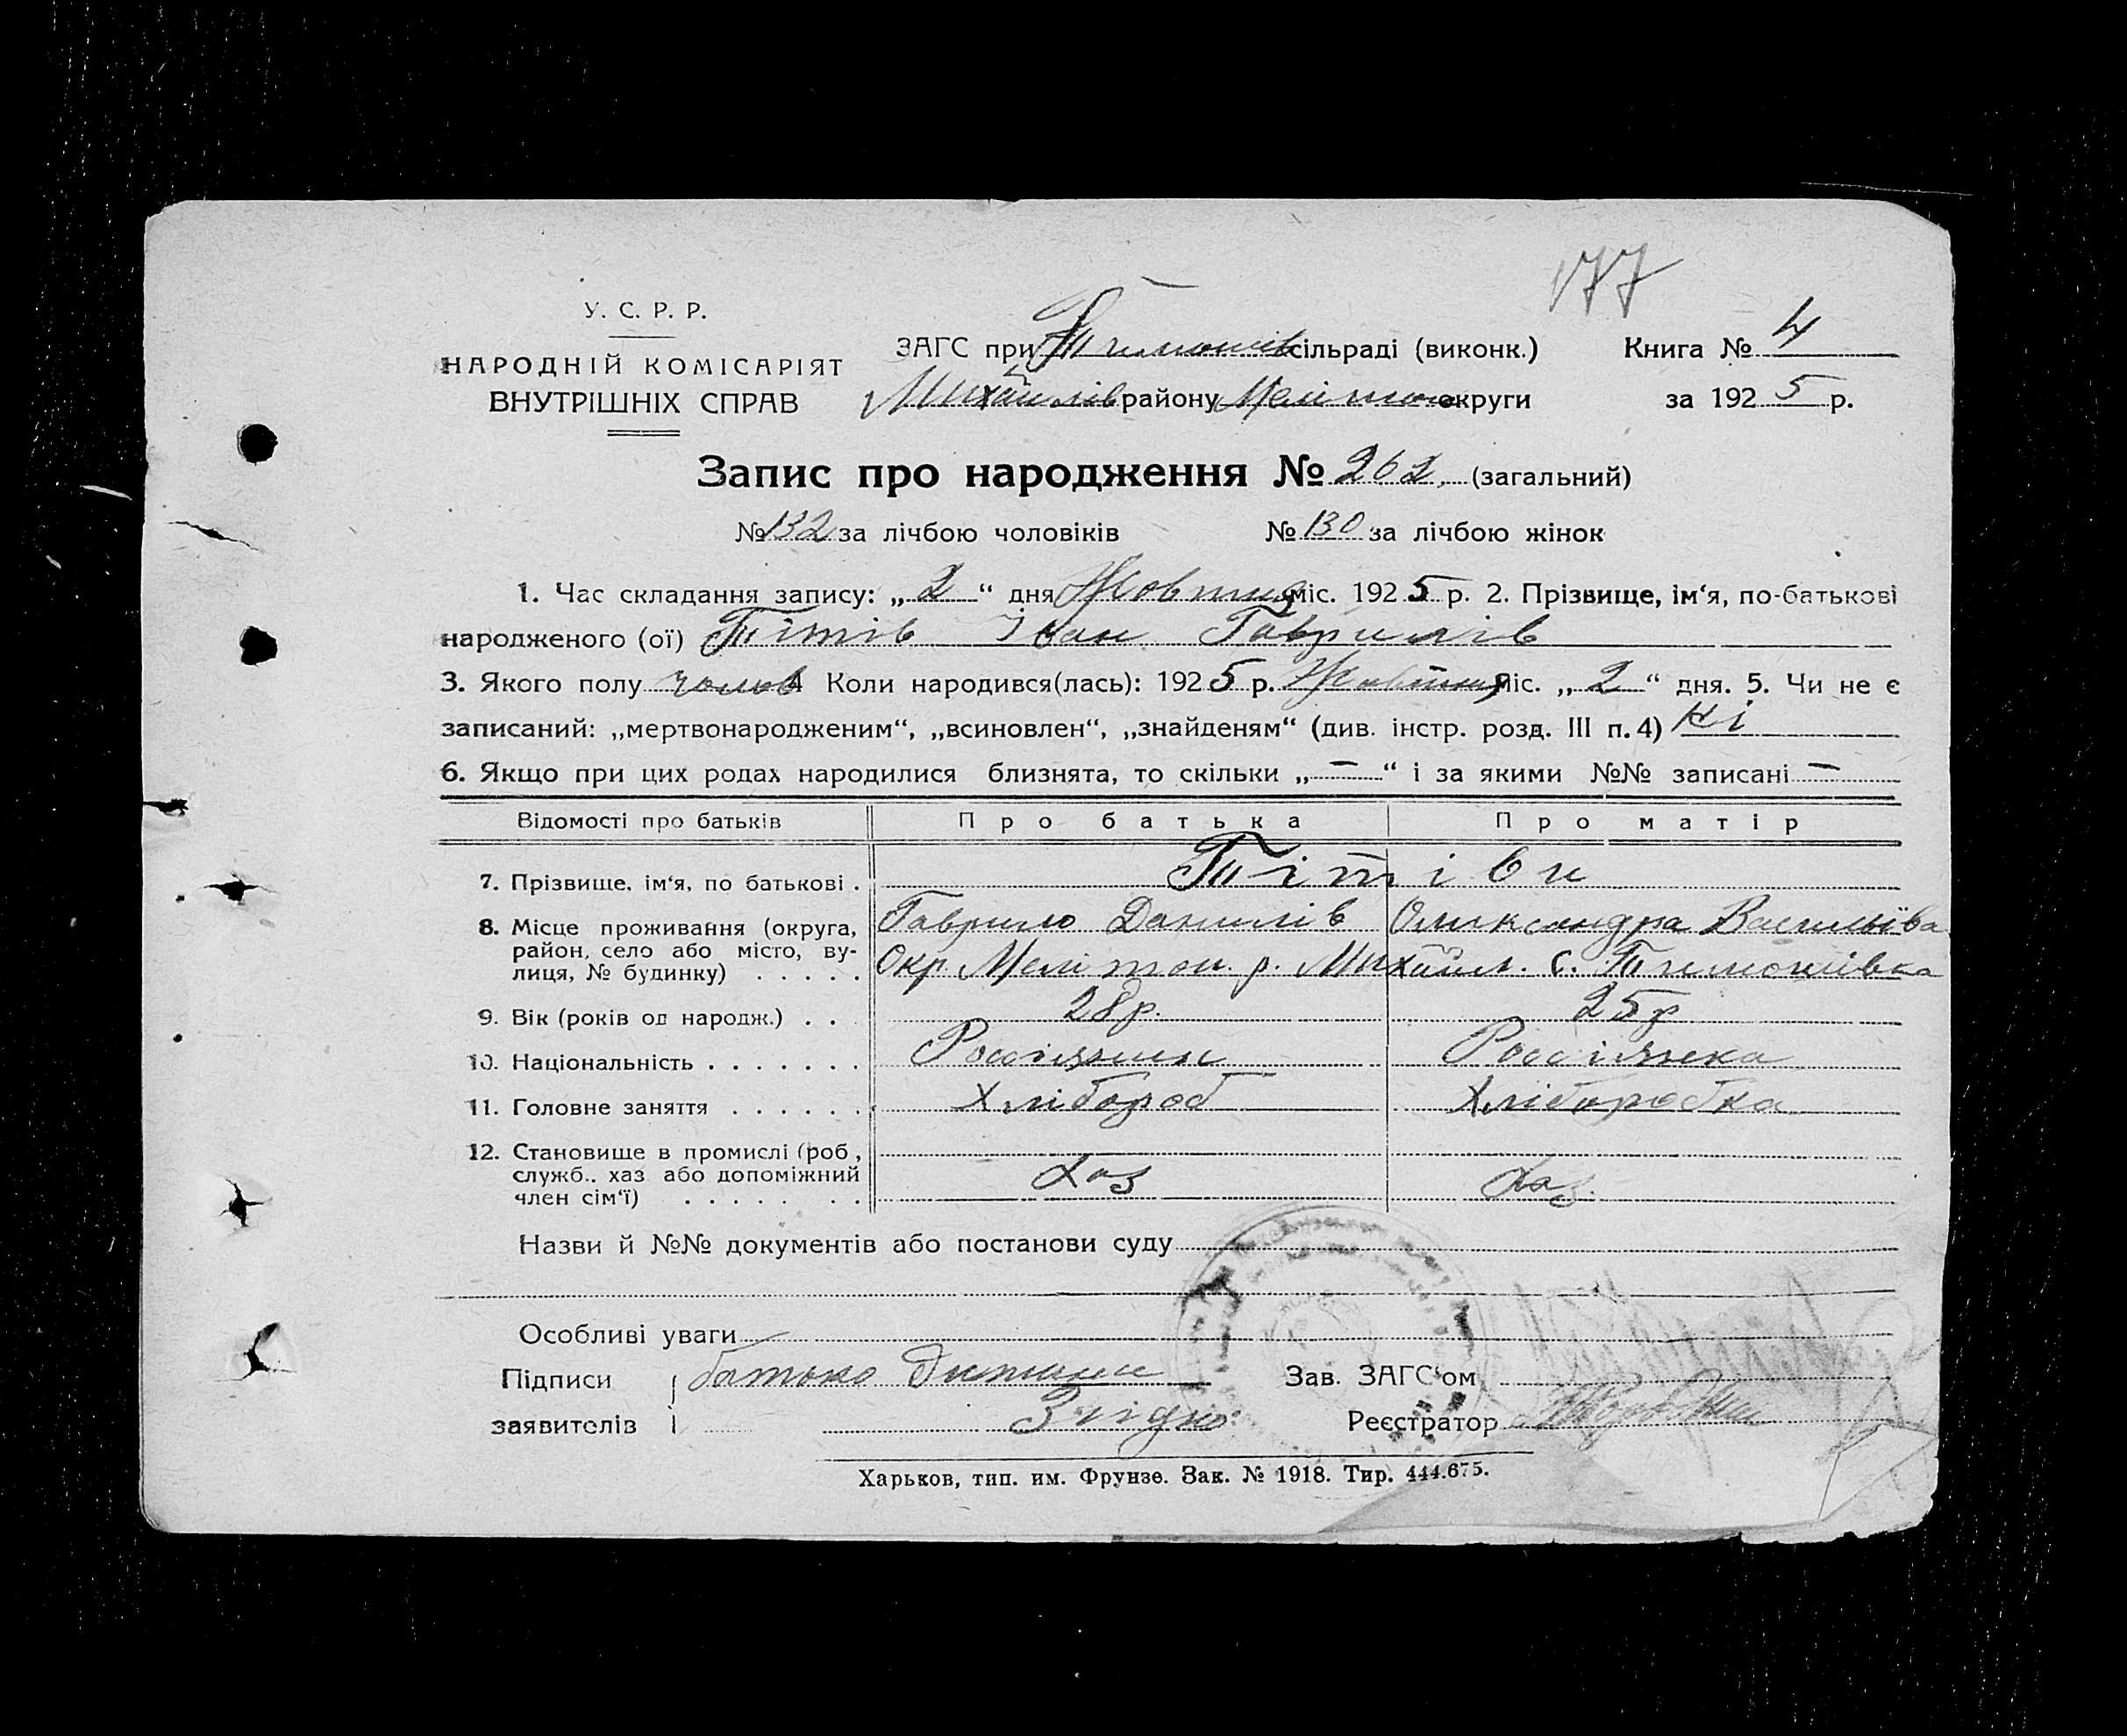 177
У. С. Р. Р.
НАРОДНІЙ КОМІСАРІЯТ
ВНУТРІШНІХ СПРАВ
ЗАГС при Тимошів сільраді (виконк.)
Книга № 4
Михайлів району Мелітоп округи
за 1925 р.
Запис про народження № 262. (загальний)
№ 132 за лічбою чоловіків № 130 за лічбою жінок
1. Час складання запису: „2“ дня Жовтня міс. 1925 р. 2. Прізвище, ім‘я, по-батькові
народженого (ої) Тітів Іван Гаврилів
3. Якого полу чолов 4 Коли народився(лась): 1925 р. Жовтня міс. „2“ дня. 5. Чи не є
записаний: „мертвонародженим“, „всиновлен“, „знайденям“ (див. інстр. розд. III п. 4) Ні
6. Якщо при цих родах народилися близнята, то скільки „—“ і за якими №№ записані —
Відомості про батьків Про батька Про матір
7. Прізвище, ім‘я, по батькові . Тітіви
8. Місце проживання (округа, Гаврило Данилів Олександра Васильїва
район, село або місто, ву-
лиця, № будинку) . . . . . Окр Мелітоп. р. Михайл. с. Тимошівка
9. Вік (років од народж.) . . 28 р. 25 р
10. Національність . . . . . . . Россіянин Россіянка
11. Головне заняття . . . . . . Хлібороб Хліборобка
12. Становище в промислі (роб,
служб.. хаз або допоміжний Хаз Хаз.
член сім‘ї) . . . . . . .
Назви й №№ документів або постанови суду
Особливі уваги —
Підписи батько дитини Зав. ЗАГС‘ом
заявителів Згідно: Реєстратор
Харьков, тип. им. Фрунзе. Зак. № 1918. Тир. 444.675.